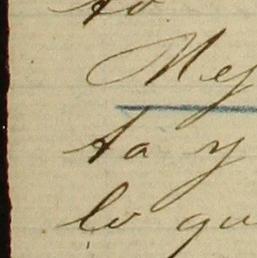 to
Mej
ta y
lo qu